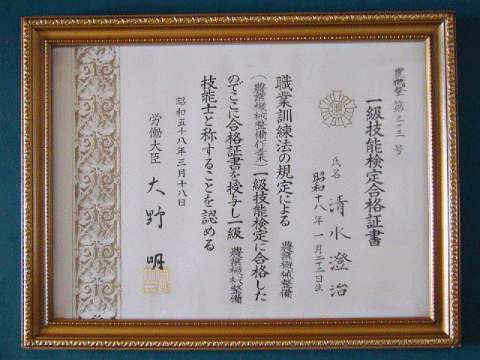 農機整 第三三号
一級技能検定合格証書
氏名 清水澄治
昭和十八年一月二十二日生
職業訓練法の規定による 農業機械整備
(農業機械整備作業)一級技能検定に合格した
のでここに合格証書を授与し一級 農業機械整備
技能士と称することを認める
昭和五十八年三月十八日
労働大臣 大野明